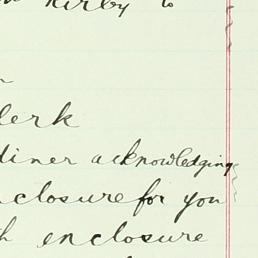 Kirby to
lerk
diner acknowledging
closure for you
h enclosure